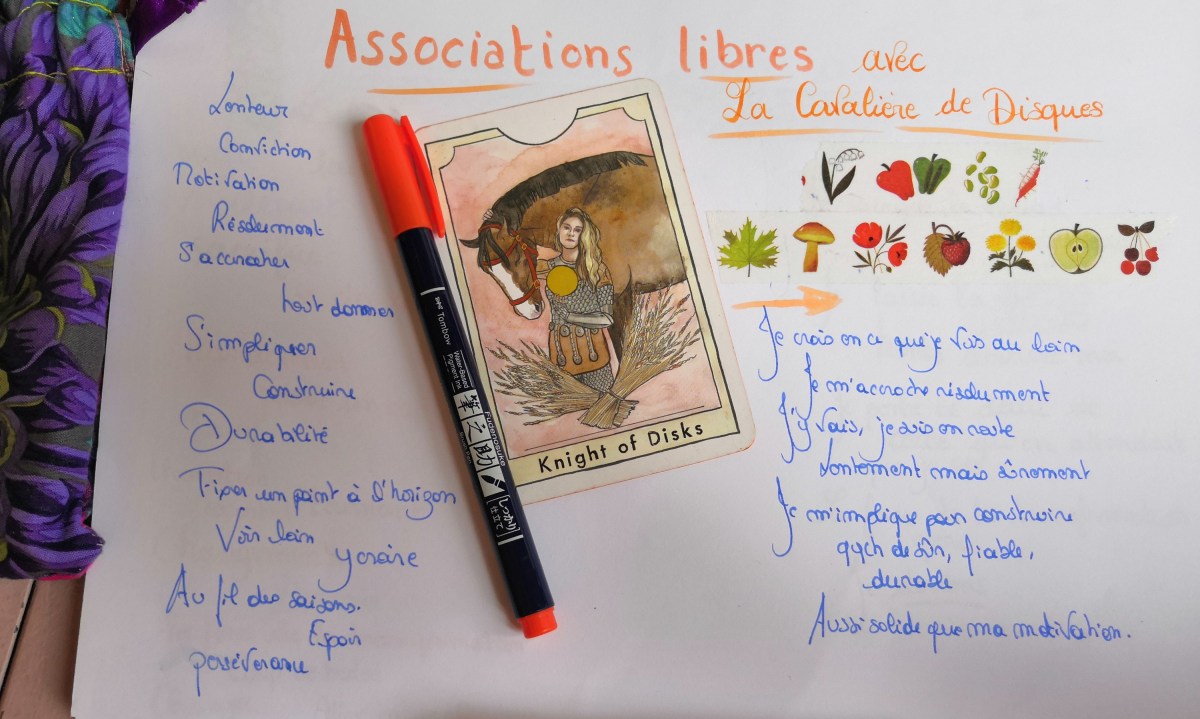 Associations libres avec
La Cavalière de Disques
Lenteur
Conviction
Motivation
Résolument
S'accrocher
tout donner
S'impliquer
Construire
Durabilité
Fixer un point à l'horizon
Voir loin
y croire
Au fil des saisons.
Espoir
persévérance
Knight of Disks
Tombow
Water-Based
Pigment Ink
Fudenosuke
筆之助
しっかり
仕立て
Je crois en ce que je vois au loin
Je m'accroche résolument
J'y vais, je suis en route
lentement mais sûrement
Je m'implique pour construire
qqch de sûr, fiable,
durable
Aussi solide que ma motivation.